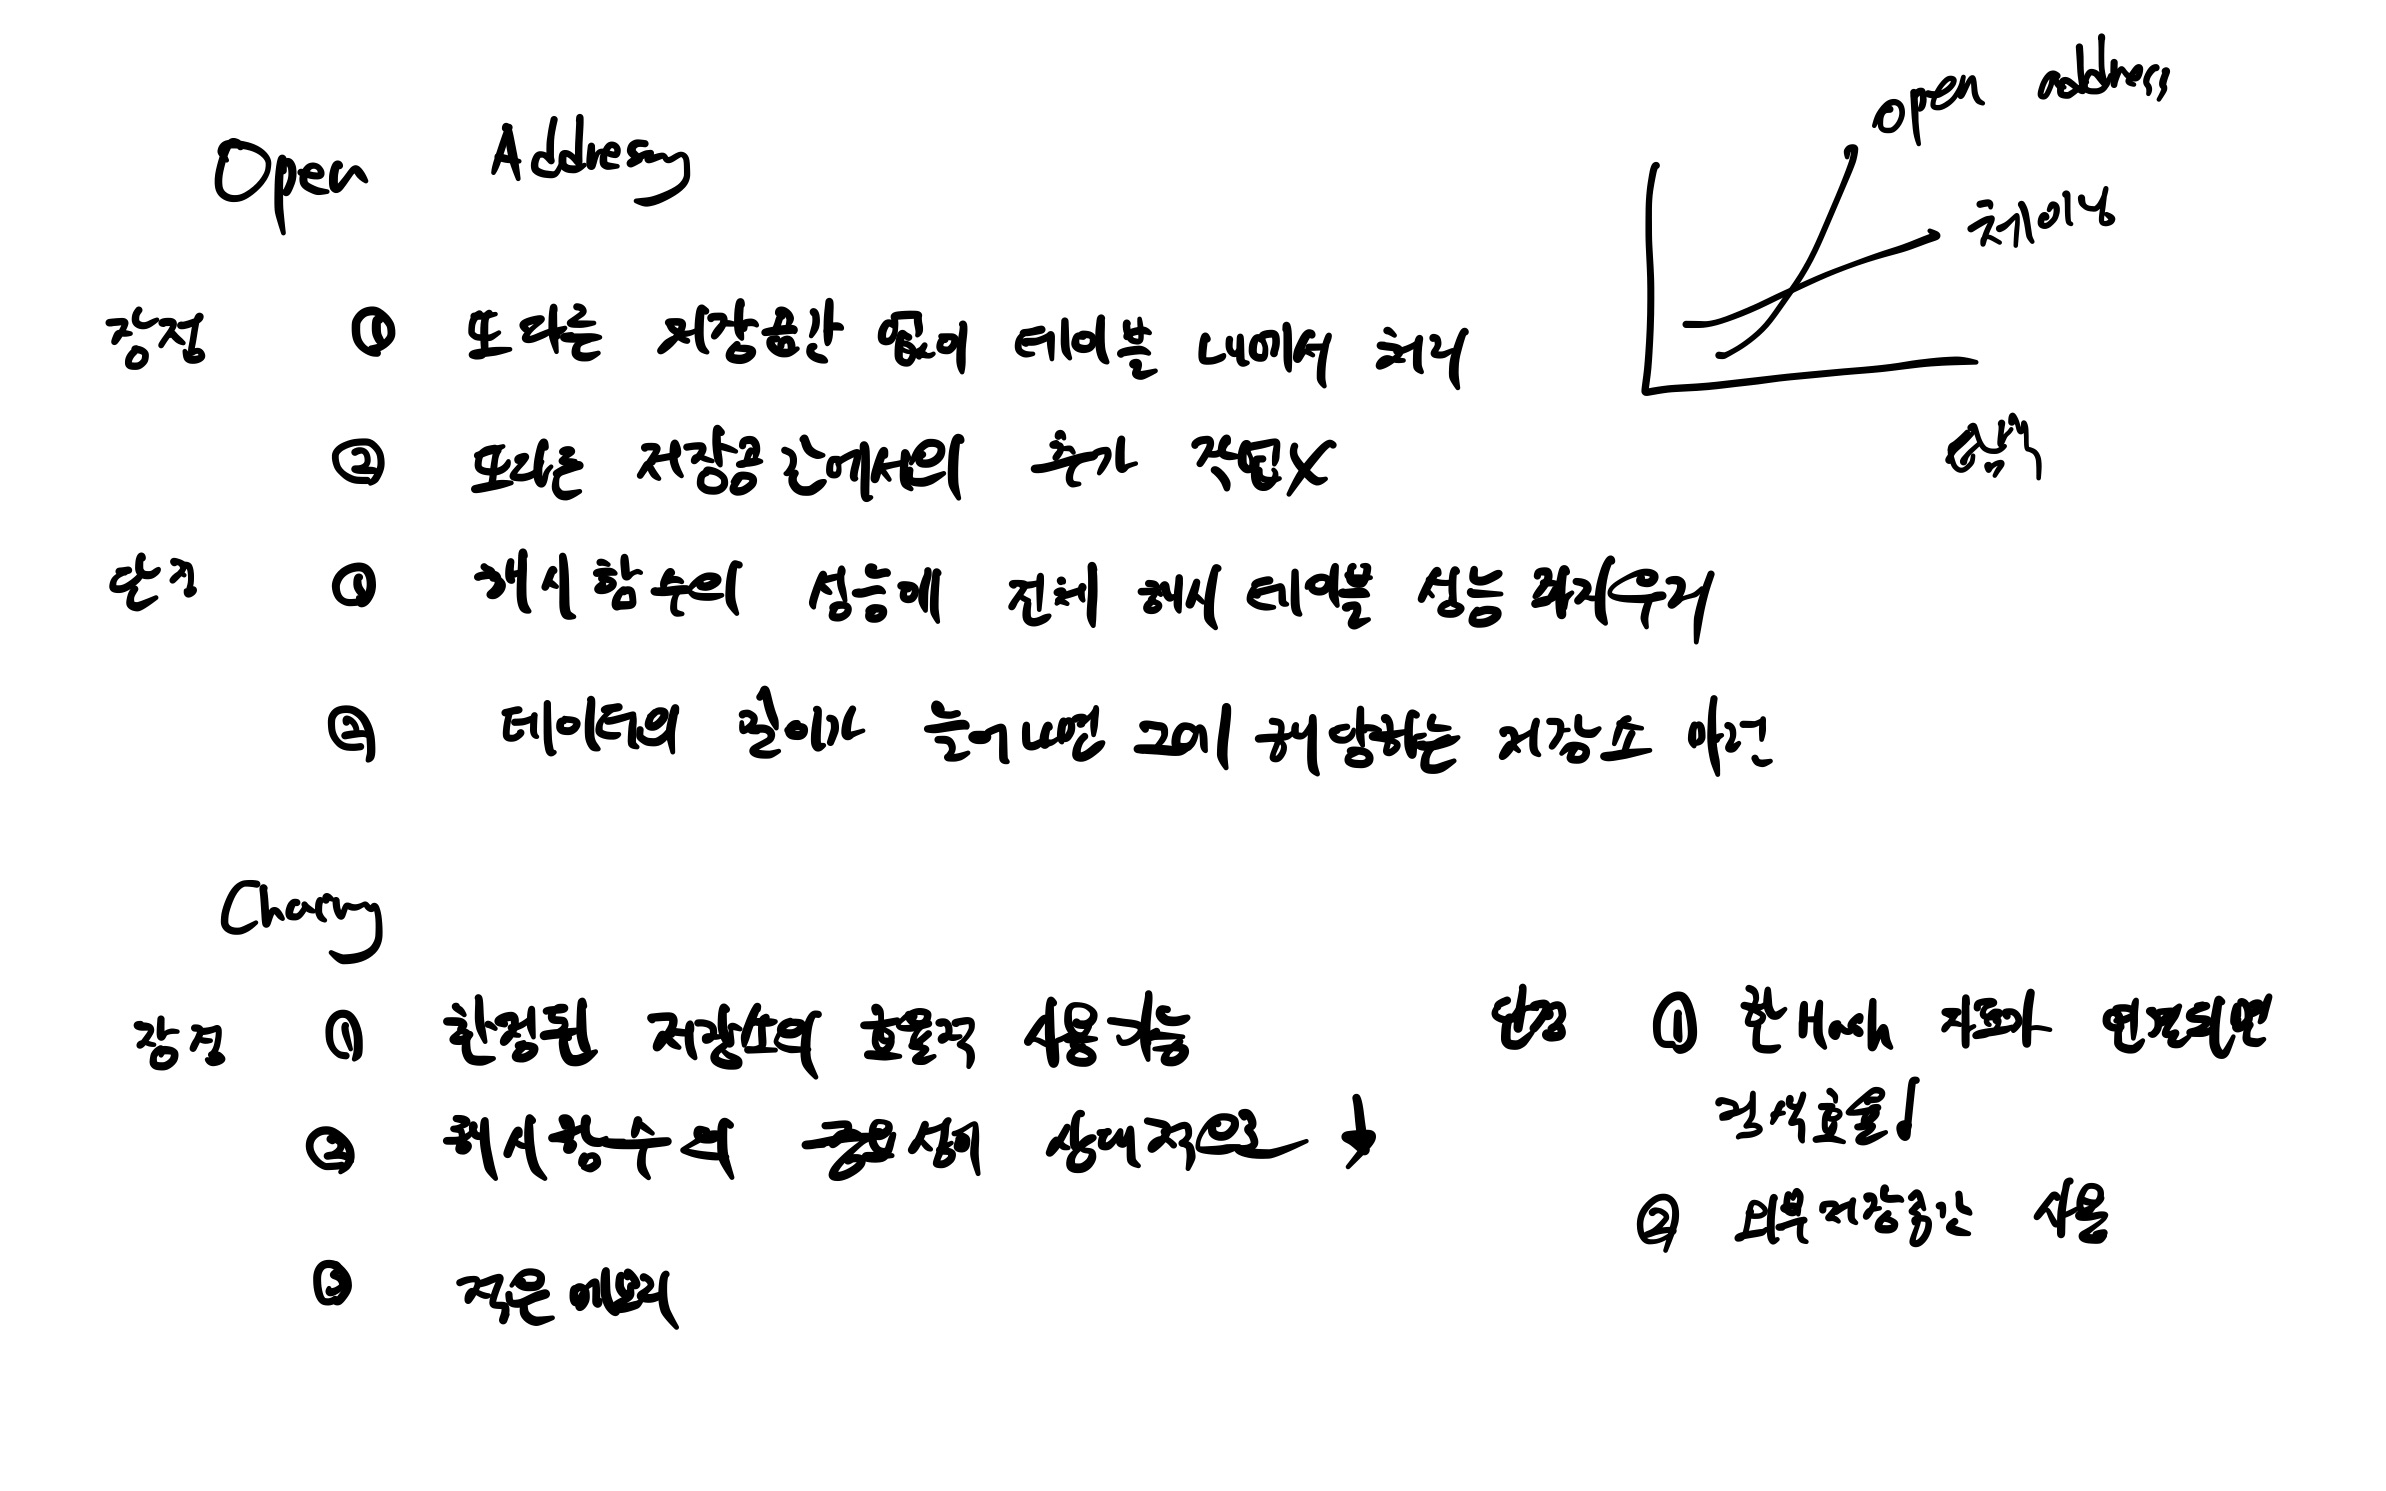 open address
Open Addressing
체이닝
장점 ① 또 다른 저장공간 없이 테이블 내에서 처리
② 또 다른 저장공간에서의 추가 작업 X
단점 ① 해시 함수의 성능에 전체 해시 테이블 성능 좌지우지
② 데이터의 길이가 늘어나면 그에 해당하는 저장소 마련
Chaining
장점 ① 한정된 저장소의 효율적 사용 가능 단점 ① 한 Hash에 자료가 연결되면
검색 효율 ↓
② 해시 함수의 중요성이 상대적으로 ↓ ② 외부 저장 공간 사용
③ 적은 메모리